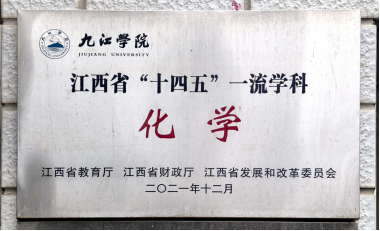 九江学院
JIUJIANG UNIVERSITY
江西省“十四五”一流学科
化学
江西省教育厅 江西省财政厅 江西省发展和改革委员会
二〇二一年十二月